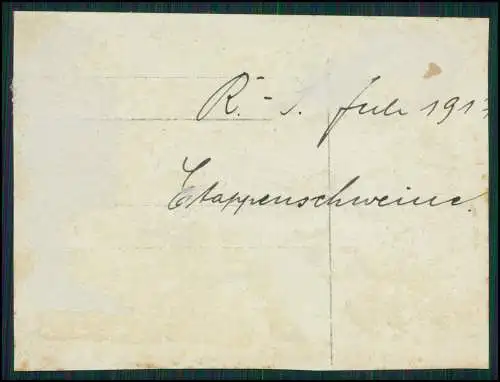 R. - S. Juli 1917
Etappenschweine.